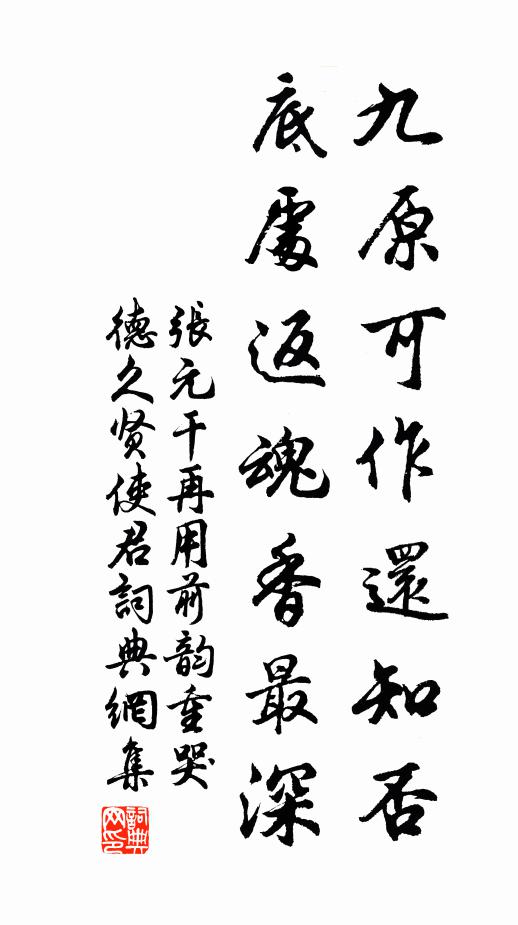 九原可作還知否
底處返魂香最深
張元干再用前韵重哭
德久贤使君詞典網集
詞典网印